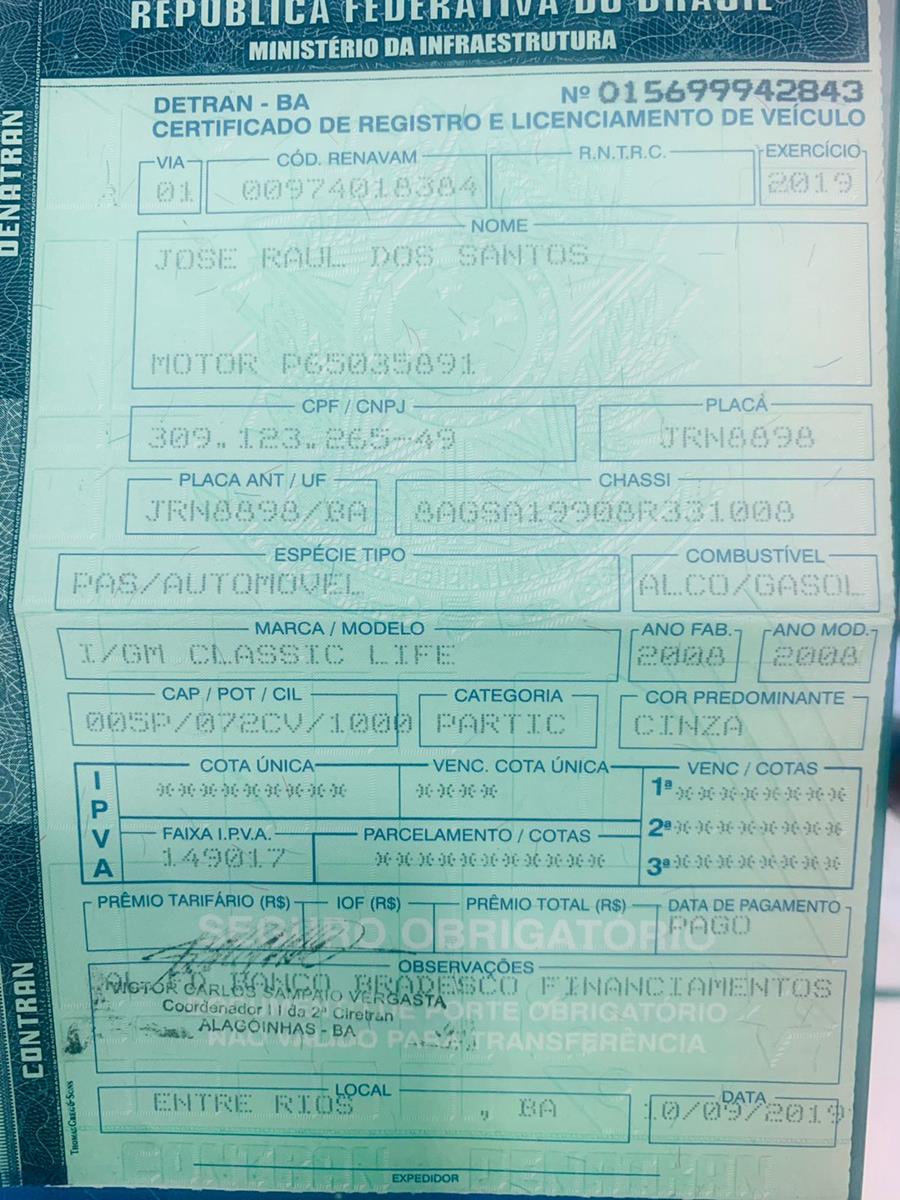 REPÚBLICA FEDERATIVA DO BRASIL
MINISTÉRIO DA INFRAESTRUTURA
DENATRAN
CONTRAN
DETRAN - BA
Nº 015699942843
CERTIFICADO DE REGISTRO E LICENCIAMENTO DE VEÍCULO
VIA CÓD. RENAVAM R.N.T.R.C. EXERCÍCIO
01 00974018384 2019
NOME
JOSE RAUL DOS SANTOS
MOTOR P65035891
CPF / CNPJ PLACA
309.123.265-49 JRN8898
PLACA ANT / UF CHASSI
JRN8898/BA 8AGSA19908R331008
ESPÉCIE TIPO COMBUSTÍVEL
PAS/AUTOMOVEL ALCO/GASOL
MARCA / MODELO ANO FAB. ANO MOD.
I/GM CLASSIC LIFE 2008 2008
CAP / POT / CIL CATEGORIA COR PREDOMINANTE
005P/072CV/1000 PARTIC CINZA
IPVA
COTA ÚNICA VENC. COTA ÚNICA VENC / COTAS
********** **** 1ª *********
2ª *********
FAIXA I.P.V.A. PARCELAMENTO / COTAS
149017 ************ 3ª *********
PRÊMIO TARIFÁRIO (R$) IOF (R$) PRÊMIO TOTAL (R$) DATA DE PAGAMENTO
PAGO
SEGURO OBRIGATÓRIO
OBSERVAÇÕES
BANCO BRADESCO FINANCIAMENTOS
VICTOR CARLOS SAMPAIO VERGASTA
Coordenador II da 2ª Ciretran
ALAGOINHAS - BA
DE PORTE OBRIGATÓRIO
NÃO VÁLIDO PARA TRANSFERÊNCIA
LOCAL DATA
ENTRE RIOS , BA 10/09/2019
EXPEDIDOR
THOMAS GREG & SONS